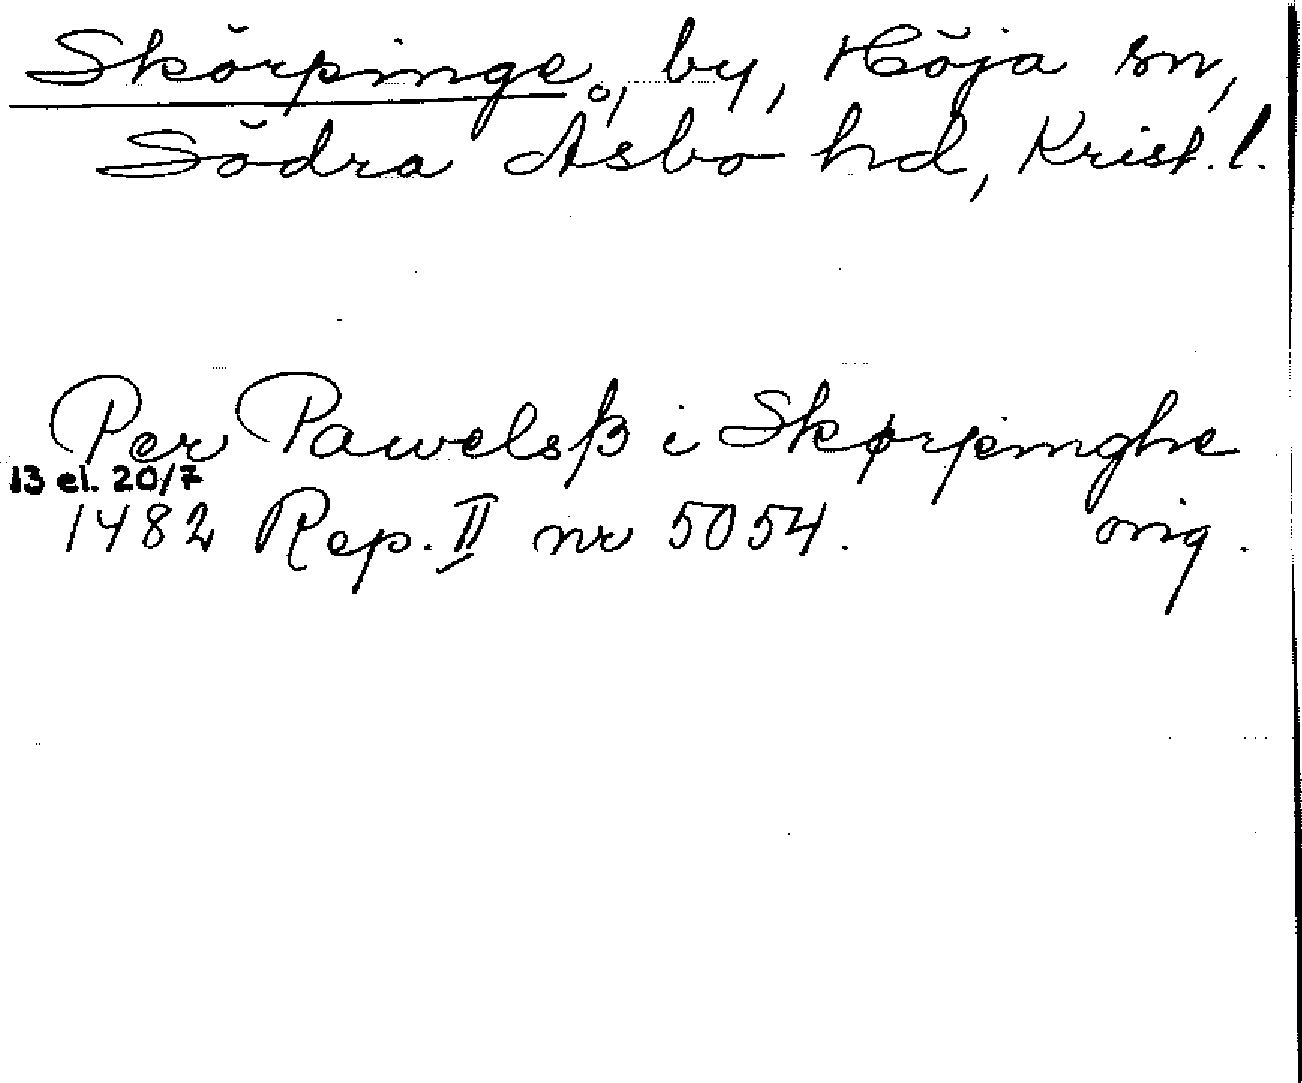 Skörpinge, by, Höja sn,
Södra Åsbo hd, Krist. l.
Per Pawelsß i Skørpinghe
13 el. 20/7
1482 Rep. II nr 5054. orig.